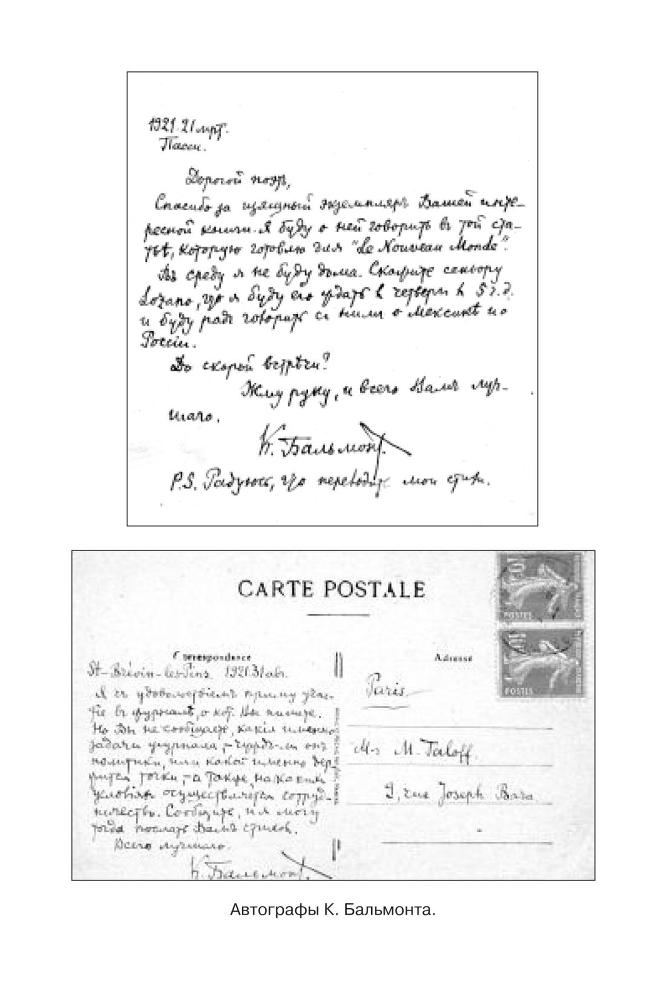 1921. 21 мрт.
Пасси.
Дорогой поэтъ,
Спасибо за изящный экземпляръ Вашей инте-
ресной книги. Я буду о ней говорить въ той ста-
тьѣ, которую готовлю для "Le Nouveau Monde".
Въ среду я не буду дома. Скажите сеньору
Lozano, что я буду его ждать въ четвергъ къ 5 ч. д.
и буду радъ говорить съ нимъ о Мексикѣ и о
Россіи.
До скорой встрѣчи?
Жму руку, и всего Вамъ луч-
шаго.
К. Бальмонт.
P.S. Радуюсь, что переводите мои стихи.
CARTE POSTALE
POSTES
POSTES
Correspondance
St-Brévin-les-Pins. 1921. 31 авг.
Я съ удовольствіемъ приму учас-
тіе въ журналѣ, о кот. Вы пишете.
Но Вы не сообщаете, какія именно
задачи журнала, – чуждъ-ли онъ
политики, или какой именно дер-
жится точки, – а также на какихъ
условіяхъ осуществляется сотруд-
ничество. Сообщите, и я могу
тогда послать Вамъ стиховъ.
Всего лучшаго.
К. Бальмонт.
Adresse
Paris.
M-r M. Taloff.
9, rue Joseph Bara.
Автографы К. Бальмонта.